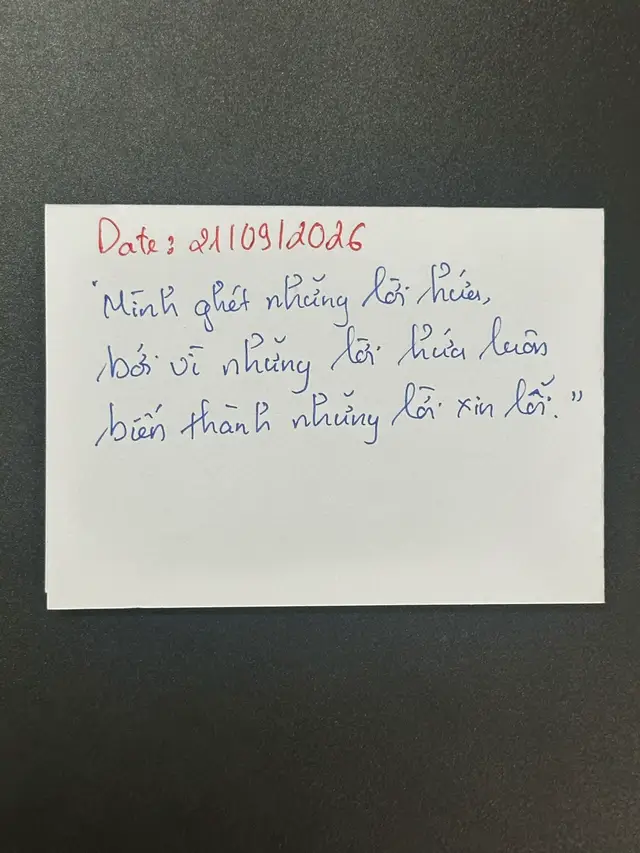 Date: 21/09/2026
"Mình ghét những lời hứa,
bởi vì những lời hứa luôn
biến thành những lời xin lỗi."